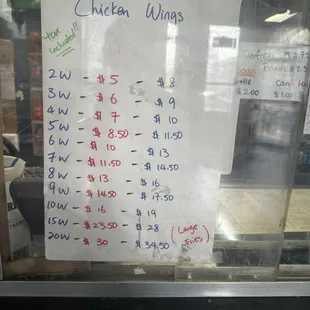 Chicken Wings
tax
included!!
2W - $5 - $8
3W - $6 - $9
4W - $7 - $10
5W - $8.50 - $11.50
6W - $10 - $13
7W - $11.50 - $14.50
8W - $13 - $16
9W - $14.50 - $17.50
10W - $16 - $19
15W - $23.50 - $28
20W - $30 - $34.50
(Large
Fries)
$2.00